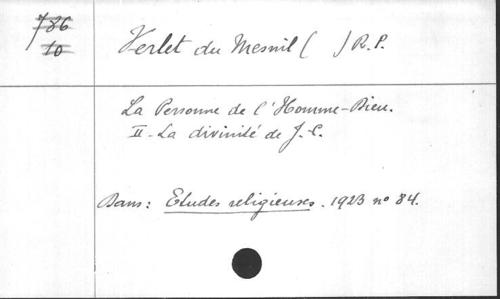 786
10
Verlet du Mesnil ( ) R.P.
La Personne de l'Homme-Dieu.
II - La divinité de J.-C.
Dans: Etudes religieuses. 1923 nº 84.